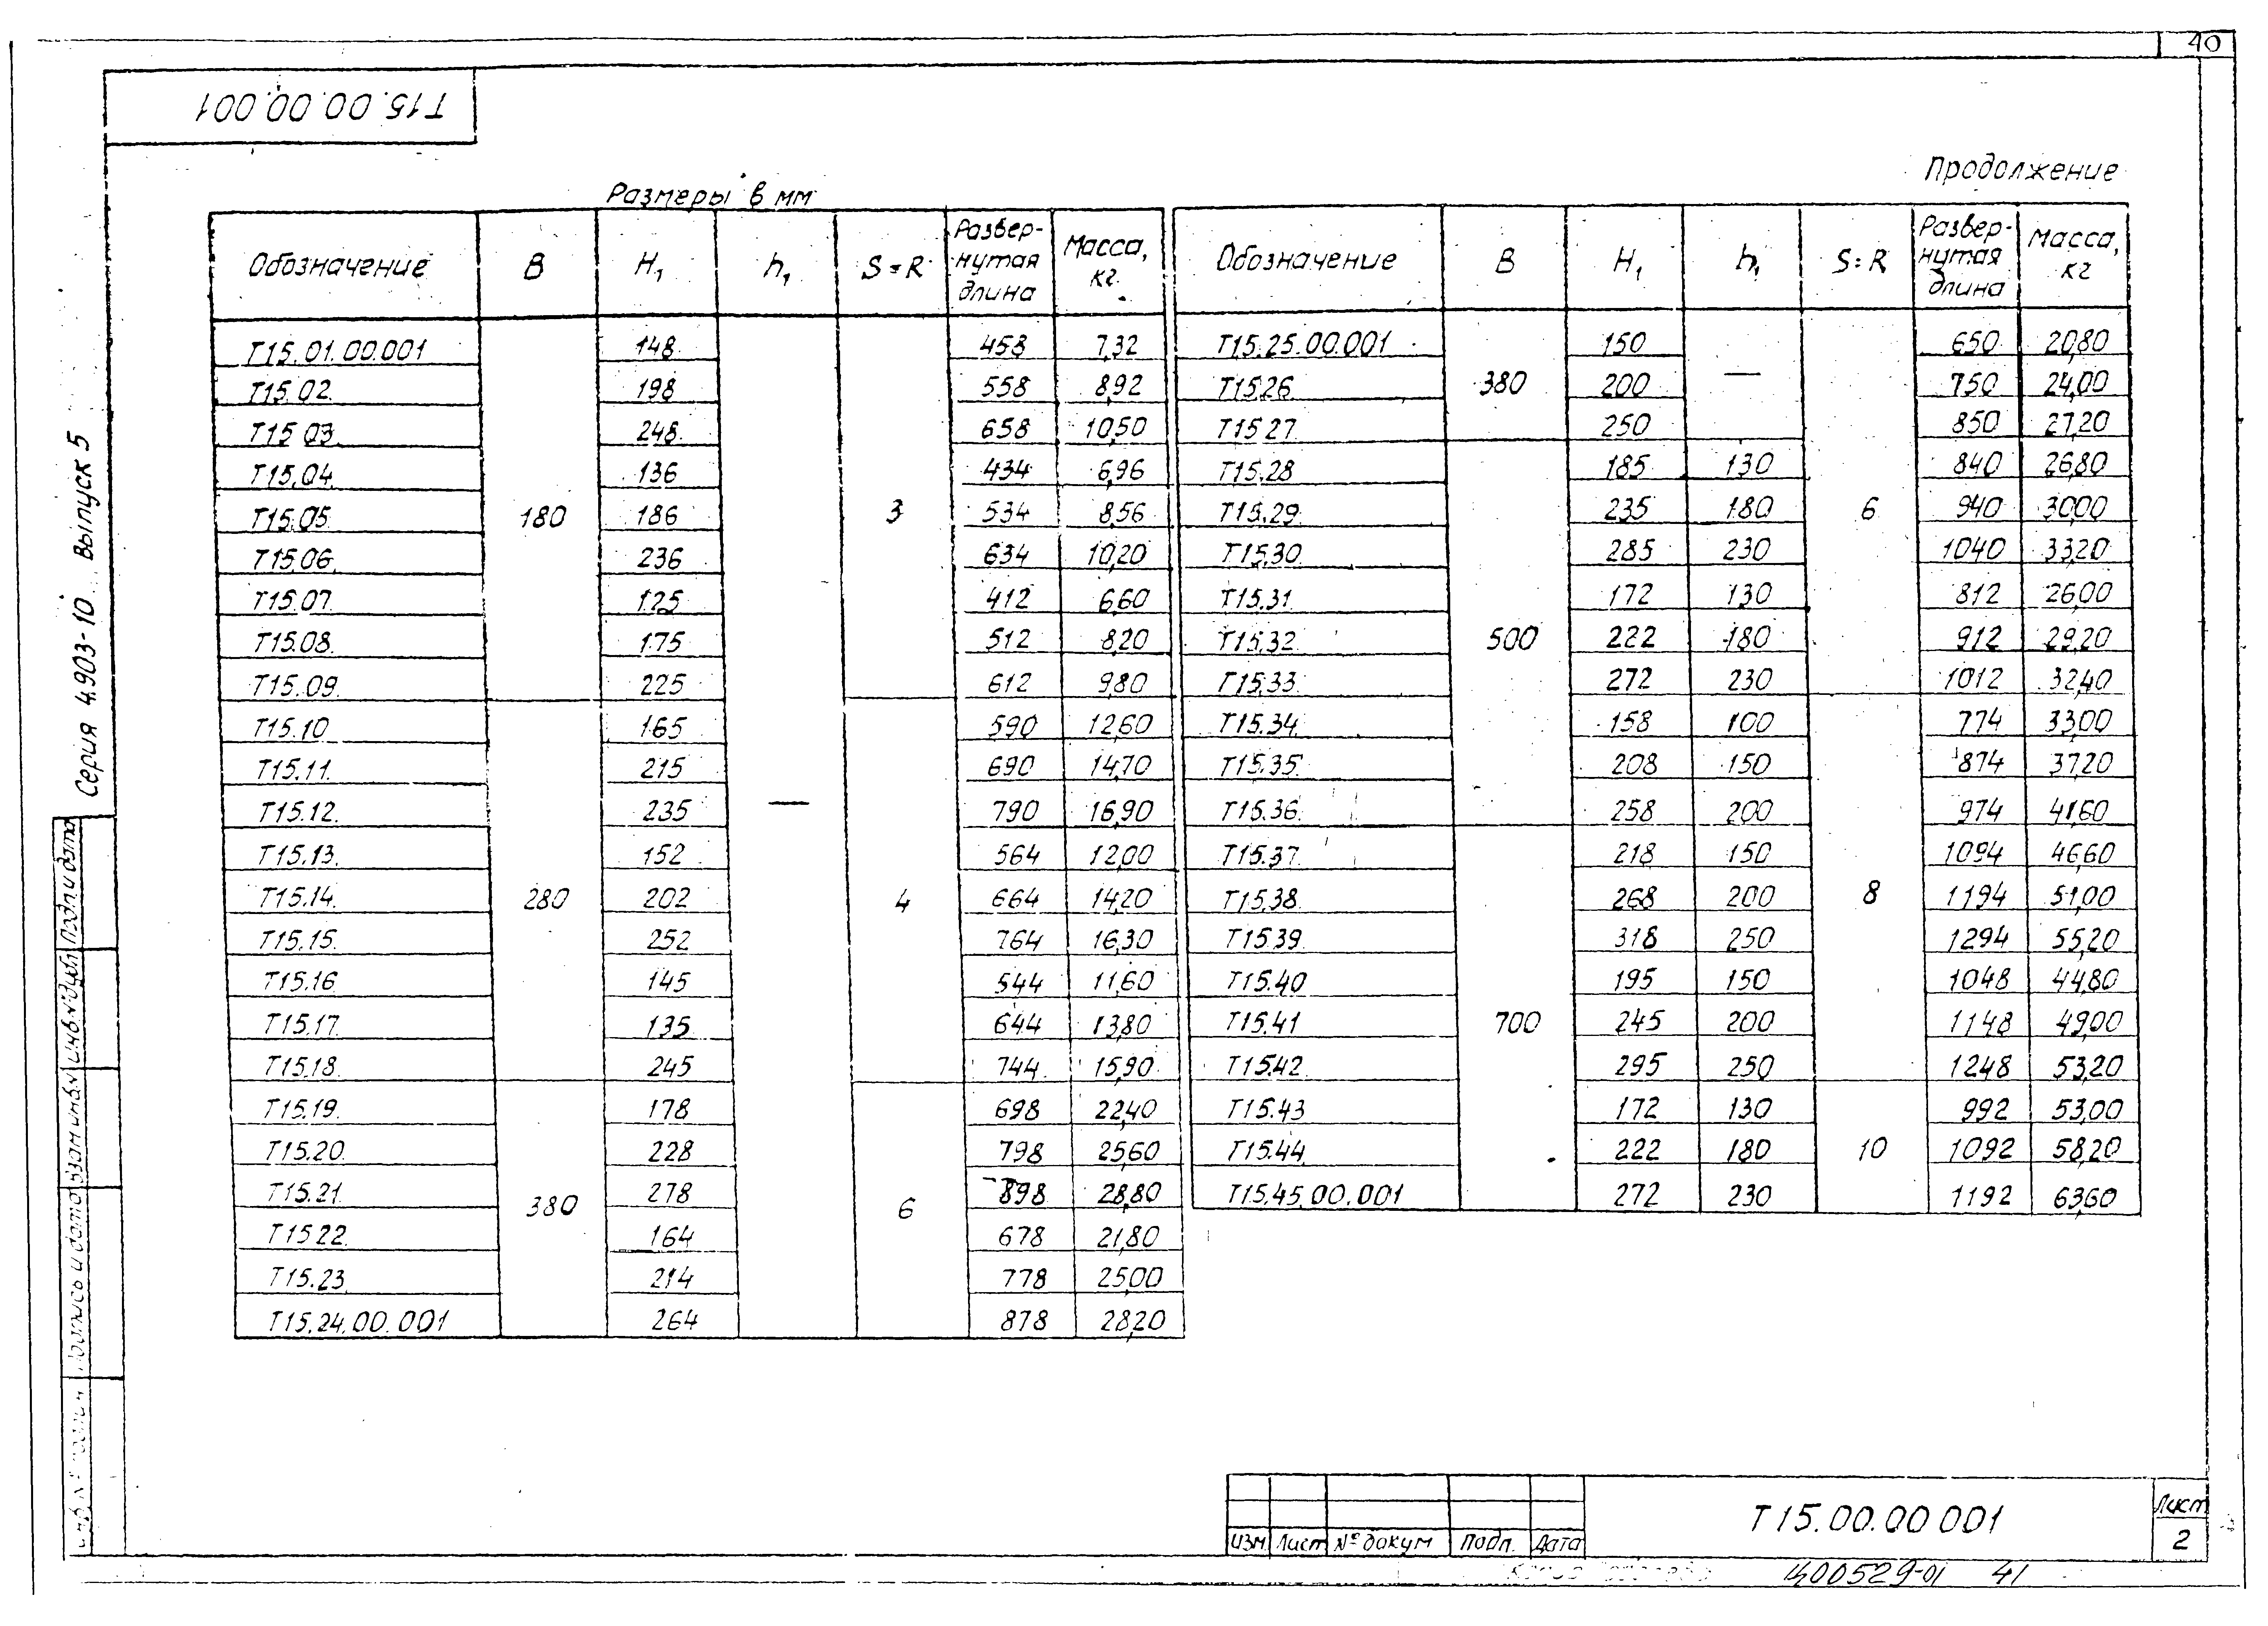 40
Т15.00.00.001
Продолжение
Размеры в мм
Обозначение B H₁ h₁ S=R Развер-нутая длина Масса, кг. Обозначение B H₁ h₁ S=R Развер-нутая длина Масса, кг
Т15.01.00.001 180 148 — 3 458 7,32 Т15.25.00.001 380 150 — 6 650 20,80
Т15.02. 198 558 8,92 Т15.26 200 750 24,00
Т15 03. 248 658 10,50 Т15.27 250 850 27,20
Т15.04. 136 434 6,96 Т15.28 500 185 130 840 26,80
Т15.05 186 534 8,56 Т15.29 235 180 940 30,00
Т15.06. 236 634 10,20 Т15.30 285 230 1040 33,20
Т15.07. 125 412 6,60 Т15.31 172 130 812 26,00
Т15.08. 175 512 8,20 Т15.32 222 180 912 29,20
Т15.09. 225 612 9,80 Т15.33 272 230 1012 32,40
Т15.10 280 165 4 590 12,60 Т15.34 158 100 8 774 33,00
Т15.11. 215 690 14,70 Т15.35 208 150 874 37,20
Т15.12. 235 790 16,90 Т15.36 258 200 974 41,60
Т15.13. 152 564 12,00 Т15.37 700 218 150 1094 46,60
Т15.14. 202 664 14,20 Т15.38 268 200 1194 51,00
Т15.15. 252 764 16,30 Т15.39 318 250 1294 55,20
Т15.16 145 544 11,60 Т15.40 195 150 1048 44,80
Т15.17. 135 644 13,80 Т15.41 245 200 1148 49,00
Т15.18. 245 744 15,90 Т15.42 295 250 1248 53,20
Т15.19. 380 178 6 698 22,40 Т15.43 172 130 10 992 53,00
Т15.20. 228 798 25,60 Т15.44 222 180 1092 58,20
Т15.21. 278 898 28,80 Т15.45.00.001 272 230 1192 63,60
Т15.22. 164 678 21,80
Т15.23. 214 778 25,00
Т15.24.00.001 264 878 28,20
Серия 4.903-10 Выпуск 5
Подп и дата
Инв № дубл
Взам инв №
Подпись и дата
Изм Лист № докум Подп. Дата
Т15.00.00 001
Лист
2
Ц00529-01 41